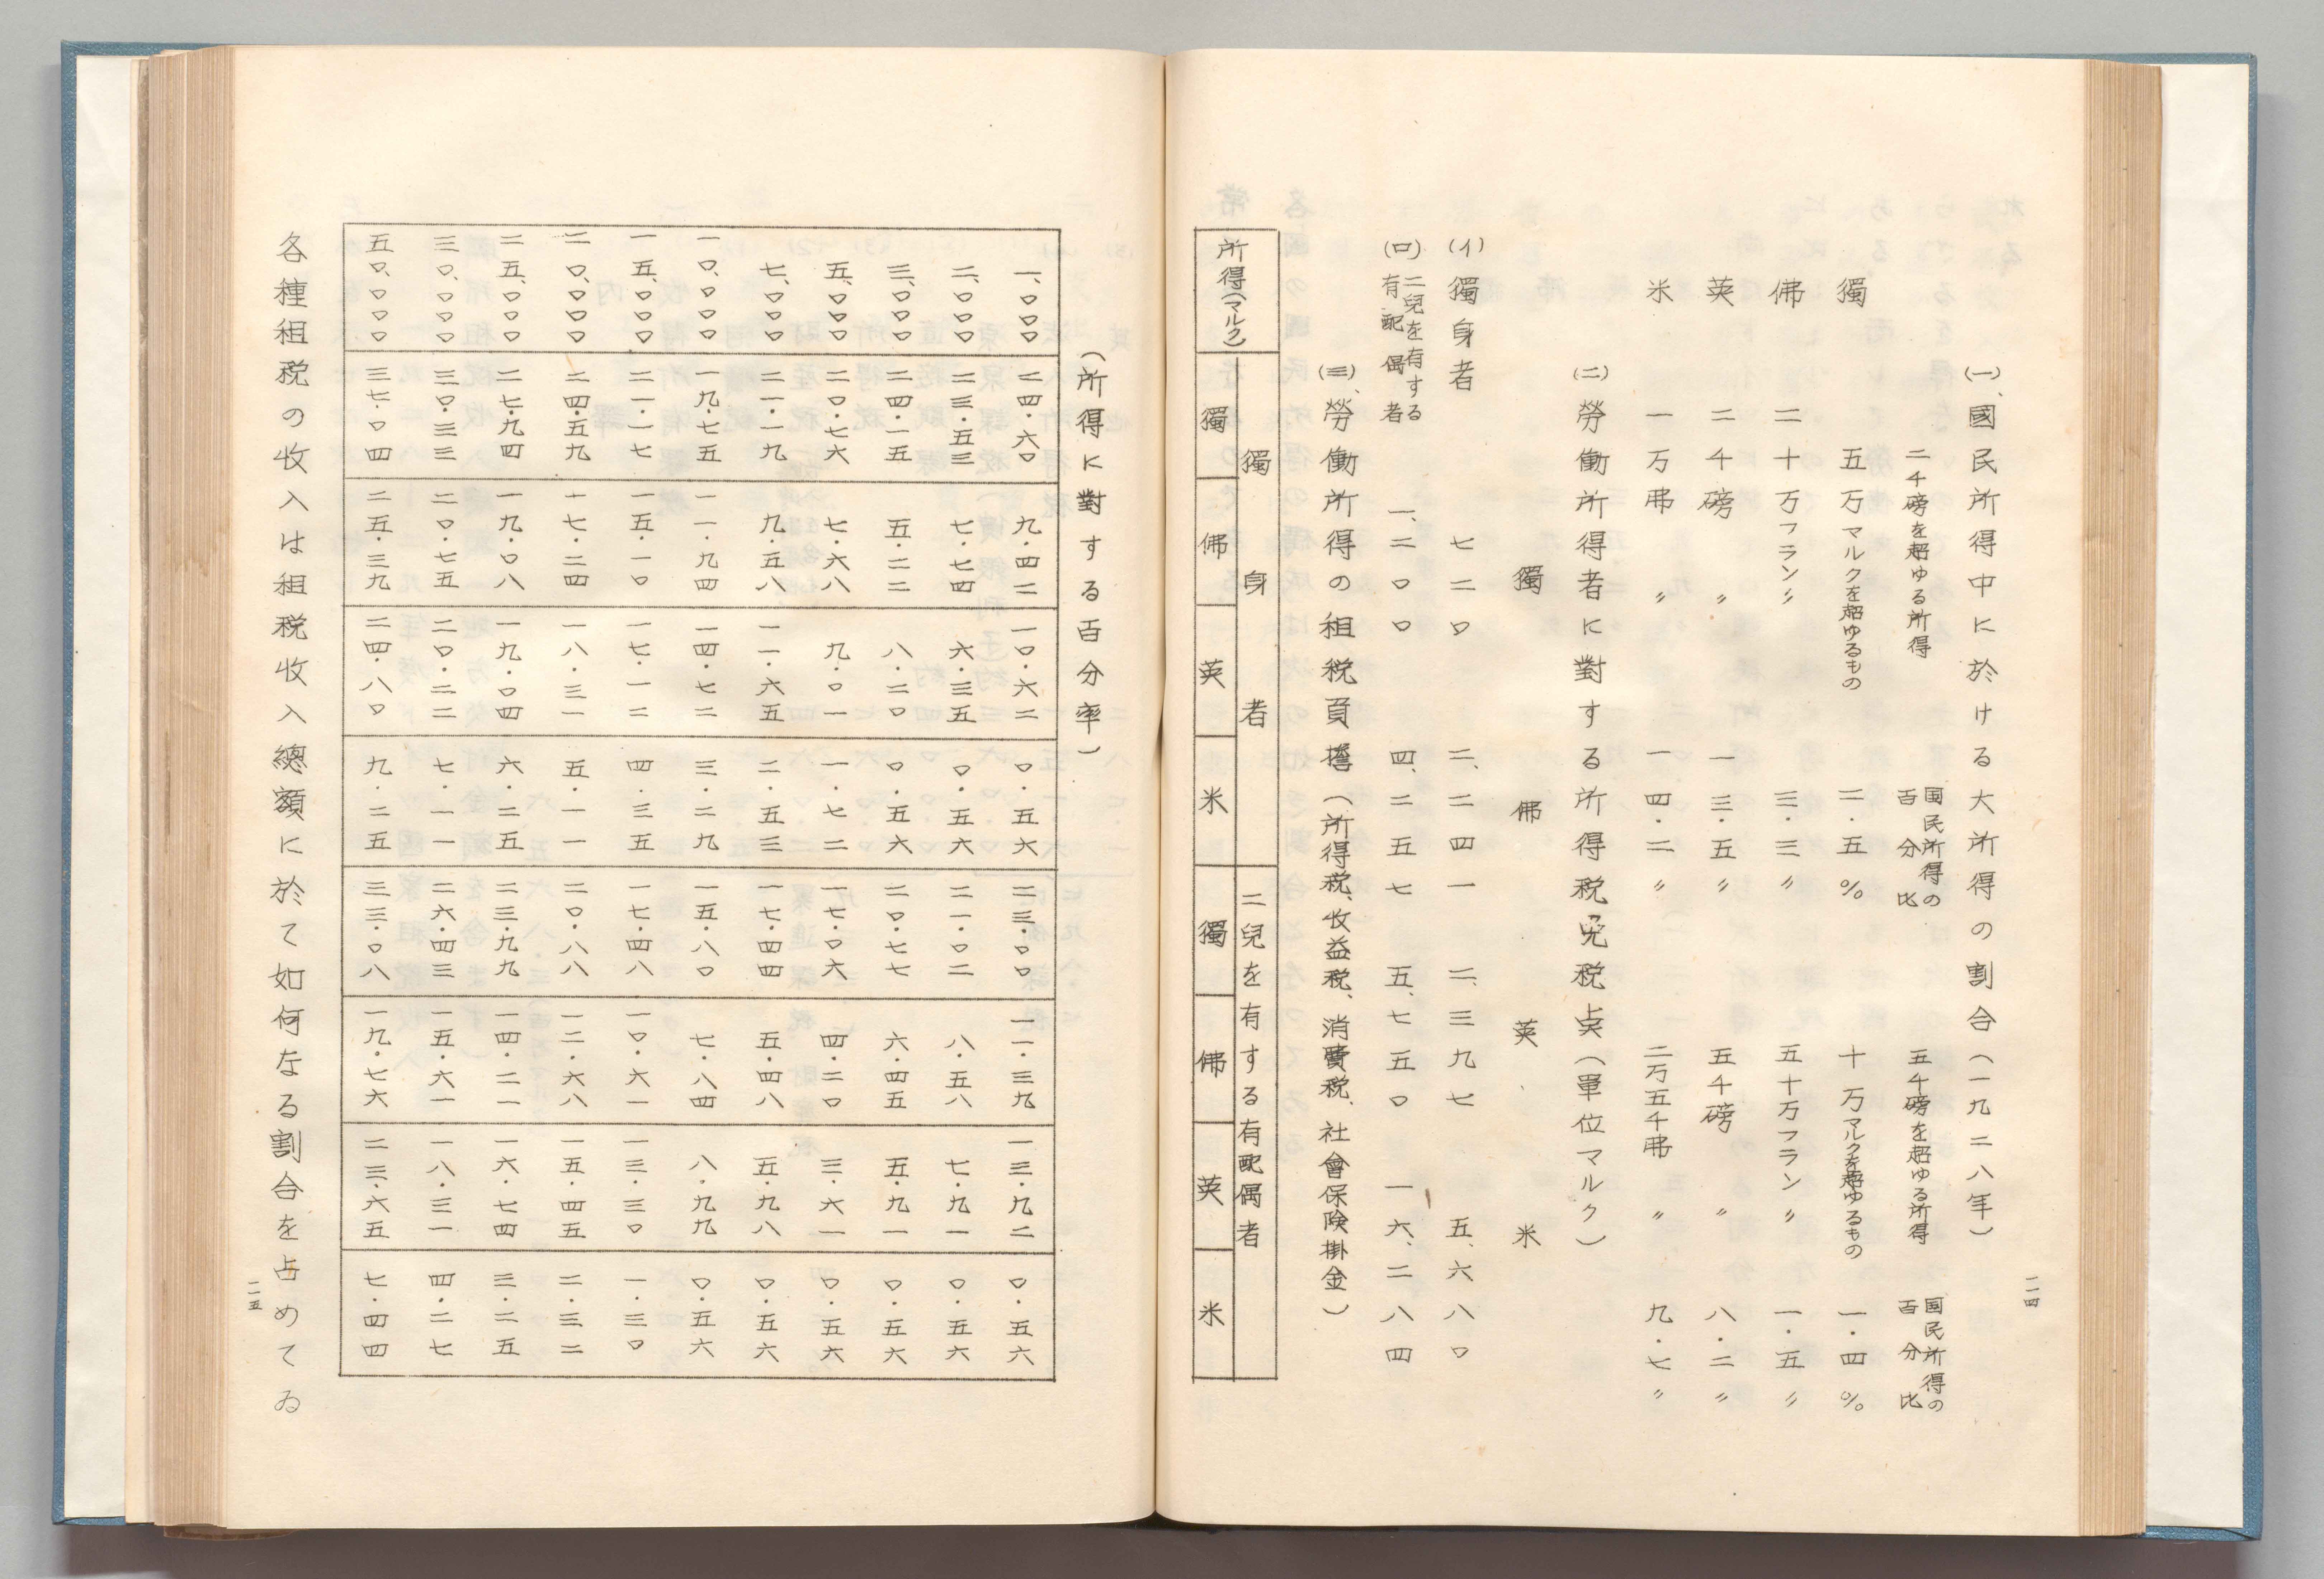 (一)、國民所得中に於ける大所得の割合(一九二八年)
二千磅を超ゆる所得 国民所得の百分比 五千磅を超ゆる所得 国民所得の百分比
獨 五万マルクを超ゆるもの 二・五% 十万マルクを超ゆるもの 一・四%
佛 二十万フラン〃 三・三〃 五十万フラン〃 一・五〃
英 二千磅 〃 一三・五〃 五千磅 〃 八・二〃
米 一万弗 〃 一四・二〃 二万五千弗 〃 九・七〃
(二)勞働所得者に對する所得税免税点(單位マルク)
獨 佛 英 米
(イ)獨身者 七二〇 二、二四一 二、三九七 五、六八〇
(ロ)二兒を有する有配偶者 一、二〇〇 四、二五七 五、七五〇 一六、二八四
(三)、勞働所得の租税負擔(所得税、收益税、消費税、社會保険掛金)
獨身者 二兒を有する有配偶者
所得(マルク) 獨 佛 英 米 獨 佛 英 米
一一四
(所得に對する百分率)
一、〇〇〇 二四・六〇 九・四二 一〇・六二 〇・五六 二三・〇〇 一一・三九 一三・九二 〇・五六
二、〇〇〇 二三・五三 七・七四 六・三五 〇・五六 二一・〇二 八・五八 七・九一 〇・五六
三、〇〇〇 二四・一五 五・二二 八・二〇 〇・五六 二〇・七七 六・四五 五・九一 〇・五六
五、〇〇〇 二〇・七六 七・六八 九・〇一 一・七二 一七・〇六 四・二〇 三・六一 〇・五六
七、〇〇〇 二一・一九 九・五八 一一・六五 二・五三 一七・四四 五・四八 五・九八 〇・五六
一〇、〇〇〇 一九・七五 一一・九四 一四・七二 三・二九 一五・八〇 七・八四 八・九九 〇・五六
一五、〇〇〇 二一・一七 一五・一〇 一七・一二 四・三五 一七・四八 一〇・六一 一三・三〇 一・三〇
二〇、〇〇〇 二四・五九 一七・二四 一八・三一 五・一一 二〇・八八 一二・六八 一五・四五 二・三二
二五、〇〇〇 二七・九四 一九・〇八 一九・〇四 六・二五 二三・九九 一四・二一 一六・七四 三・二五
三〇、〇〇〇 三〇・三三 二〇・七五 二〇・二二 七・一一 二六・四三 一五・六一 一八・三一 四・二七
五〇、〇〇〇 三七・〇四 二五・三九 二四・八〇 九・二五 三三・〇八 一九・七六 二三・六五 七・四四
各種租税の收入は租税收入總額に於て如何なる割合を占めてゐ
一一五